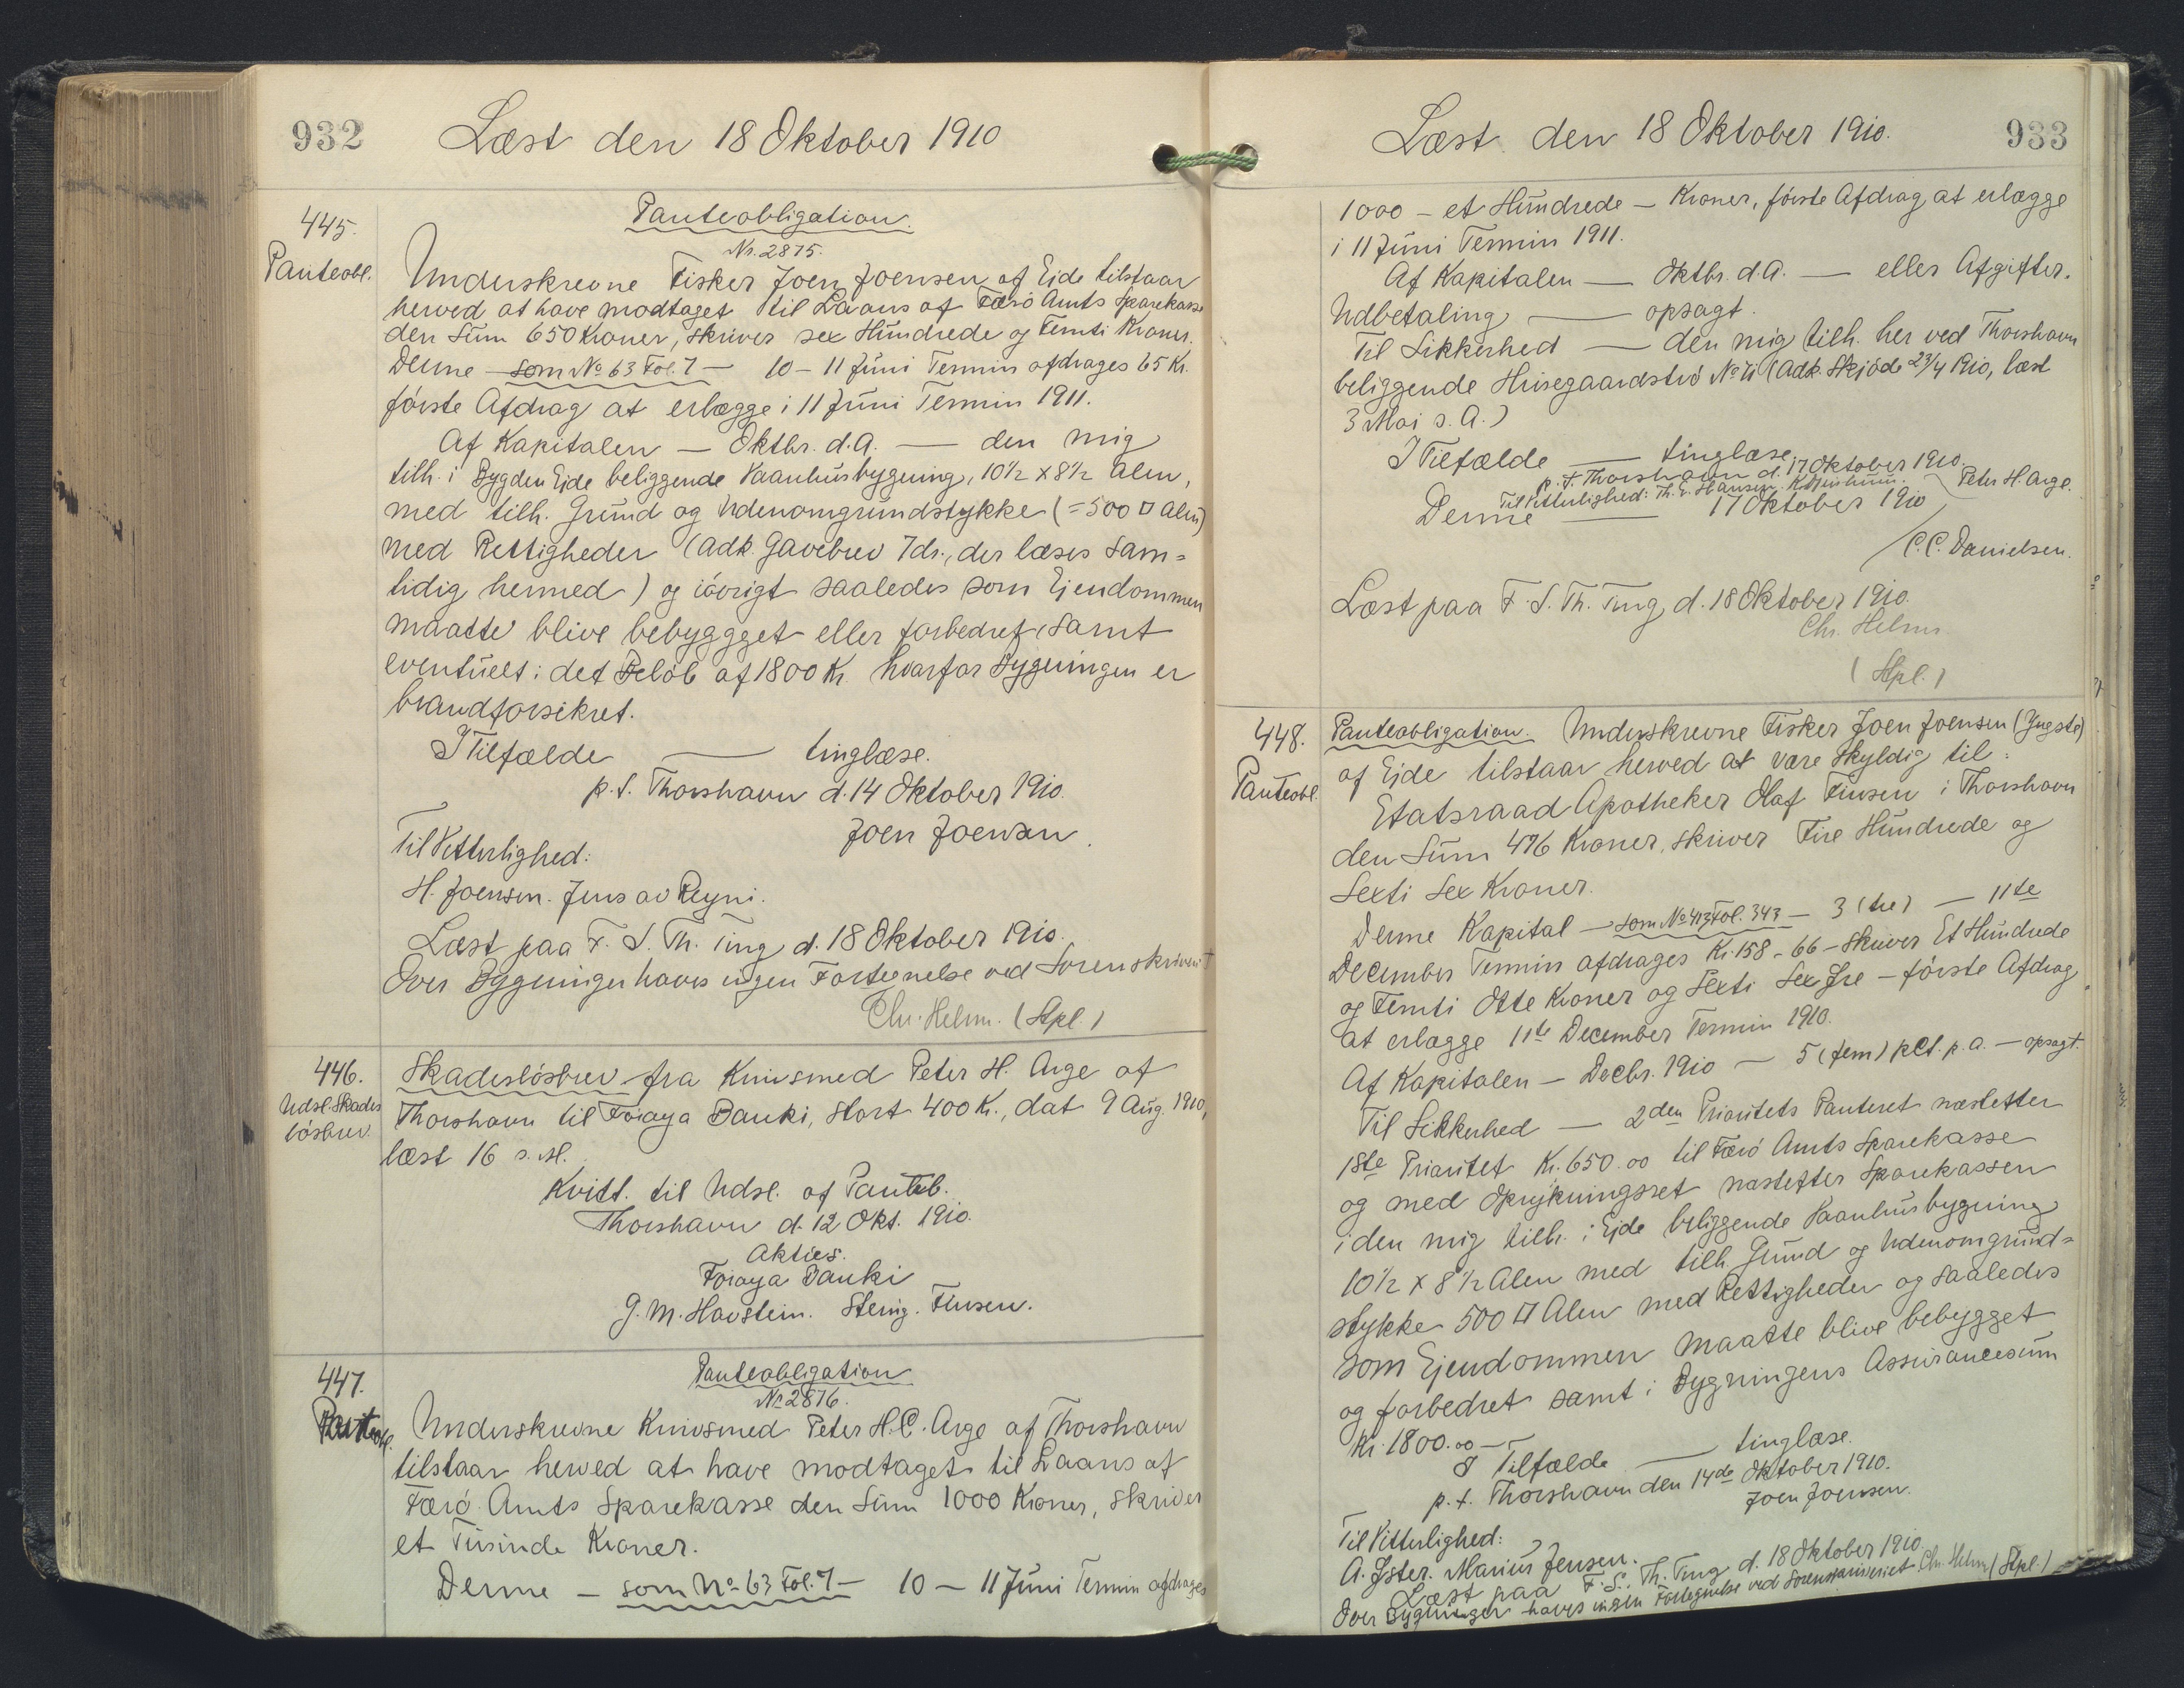 932
Læst den 18 Oktober 1910
445.
Panteobl.
Panteobligation.
Nr. 2875.
Underskrevne Fisker Joen Joensen af Ejde tilstaar
herved at have modtaget til Laans af Færö Amts Sparekasse
den Sum 650 Kroner, skriver sex Hundrede og Femti Kroner.
Denne — som No 63 Fol. 7 — 10 — 11 Juni Termin afdrages 65 Kr.
første Afdrag at erlægge i 11 Juni Termin 1911.
Af Kapitalen — Oktbr. d.A. — den mig
tilh. i Bygden Ejde beliggende Vaanhusbygning, 10½ x 8½ Alen,
med tilh. Grund og Udenomgrundstykke (= 500 □ Alen)
med Rettigheder (adk. Gavebrev 7ds., der læses sam=
tidig hermed) og iövrigt saaledes som Ejendommen
maatte blive bebyggget eller forbedret, samt
eventuelt i det Belöb af 1800 Kr. hvorfor Bygningen er
brandforsikret.
I Tilfælde — tinglæse.
p.t. Thorshavn d. 14 Oktober 1910.
Joen Joensen.
Til Vitterlighed:
H. Joensen. Jens av Reyni.
Læst paa F. S. Th. Ting d. 18 Oktober 1910.
Over Bygninger haves ingen Fortegnelse ved Sorenskriveriet
Chr. Helm. (Stpl.)
446.
Udsl. Skades
lösbrev.
Skadeslösbrev fra Knivsmed Peter H. Arge af
Thorshavn til Föroya Banki, stort 400 Kr., dat 9 Aug. 1910,
læst 16 s. M.
Kvitt. til Udsl. af Panteb.
Thorshavn d. 12 Okt. 1910.
Akties.
Föroya Banki
G. M. Havstein. Sterig. Finsen.
447.
Panteobl.
Panteobligation
Nr. 2876.
Underskrevne Knivsmed Peter H. C. Arge af Thorshavn
tilstaar herved at have modtaget til Laans af
Færö Amts Sparekasse den Sum 1000 Kroner, skriver
et Tusinde Kroner.
Denne — som No 63 Fol. 7 — 10 — 11 Juni Termin afdrages
Læst den 18 Oktober 1910.
933
1000 — et Hundrede — Kroner, förste Afdrag at erlægge
i 11 Juni Termin 1911.
Af Kapitalen — Oktbr. d.A. — eller Afgifter.
Udbetaling — opsagt.
Til Sikkerhed — den mig tilh. her ved Thorshavn
beliggende Husegaardströ (Adk. Skjöde 23/4 1910, læst
3 Mai s. A.)
I Tilfælde — tinglæse.
p.t. Thorshavn d. 17 Oktober 1910.
Peter H. Arge.
Til Vitterlighed: Th. E. Hansen.
Denne — 17 Oktober 1910
C. C. Danielsen.
Læst paa F. S. Th. Ting d. 18 Oktober 1910.
Chr. Helm
(Stpl.)
448.
Panteobl.
Panteobligation. Underskrevne Fisker Joen Joensen (Yngste)
af Ejde tilstaar herved at være skyldig til:
Etatsraad Apotheker Olaf Finsen i Thorshavn
den Sum 476 Kroner, skriver Fire Hundrede og
Sexti Sex Kroner.
Denne Kapital — som No 413 Fol. 343 — 3 (tre) — 11te
December Termin afdrages Kr. 158-66 — skriver Et Hundrede
og Femti Otte Kroner og Sexti Sex Øre — förste Afdrag
at erlægge 11te December Termin 1910.
Af Kapitalen — Decbr. 1910 — 5 (fem) pCt. p.a. — opsagt.
Til Sikkerhed — 2den Prioritets Panteret næstefter
1ste Prioritet Kr. 650.00 til Færö Amts Sparekasse
og med Oprykningsret næstefter Sparekassen
i den mig tilh. i Ejde beliggende Vaanhusbygning
10½ x 8½ Alen med tilh. Grund og Udenomgrund=
stykke 500 □ Alen med Rettigheder og saaledes
som Ejendommen maatte blive bebygget
og forbedret samt i Bygningens Assurancesum
Kr. 1800.00 —
I Tilfælde — tinglæse.
p.t. Thorshavn den 14de Oktober 1910.
Joen Joensen.
Til Vitterlighed:
A. Ister. Marius Jensen.
Læst paa F. S. Th. Ting d. 18 Oktober 1910.
Over Bygninger haves ingen Fortegnelse ved Sorenskriveriet Chr. Helm (Stpl.)